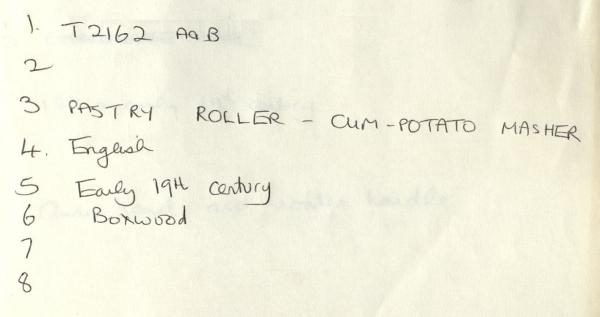 1. T2162 A&B
2
3 PASTRY ROLLER - CUM-POTATO MASHER
4. English
5 Early 19th century
6 Boxwood
7
8